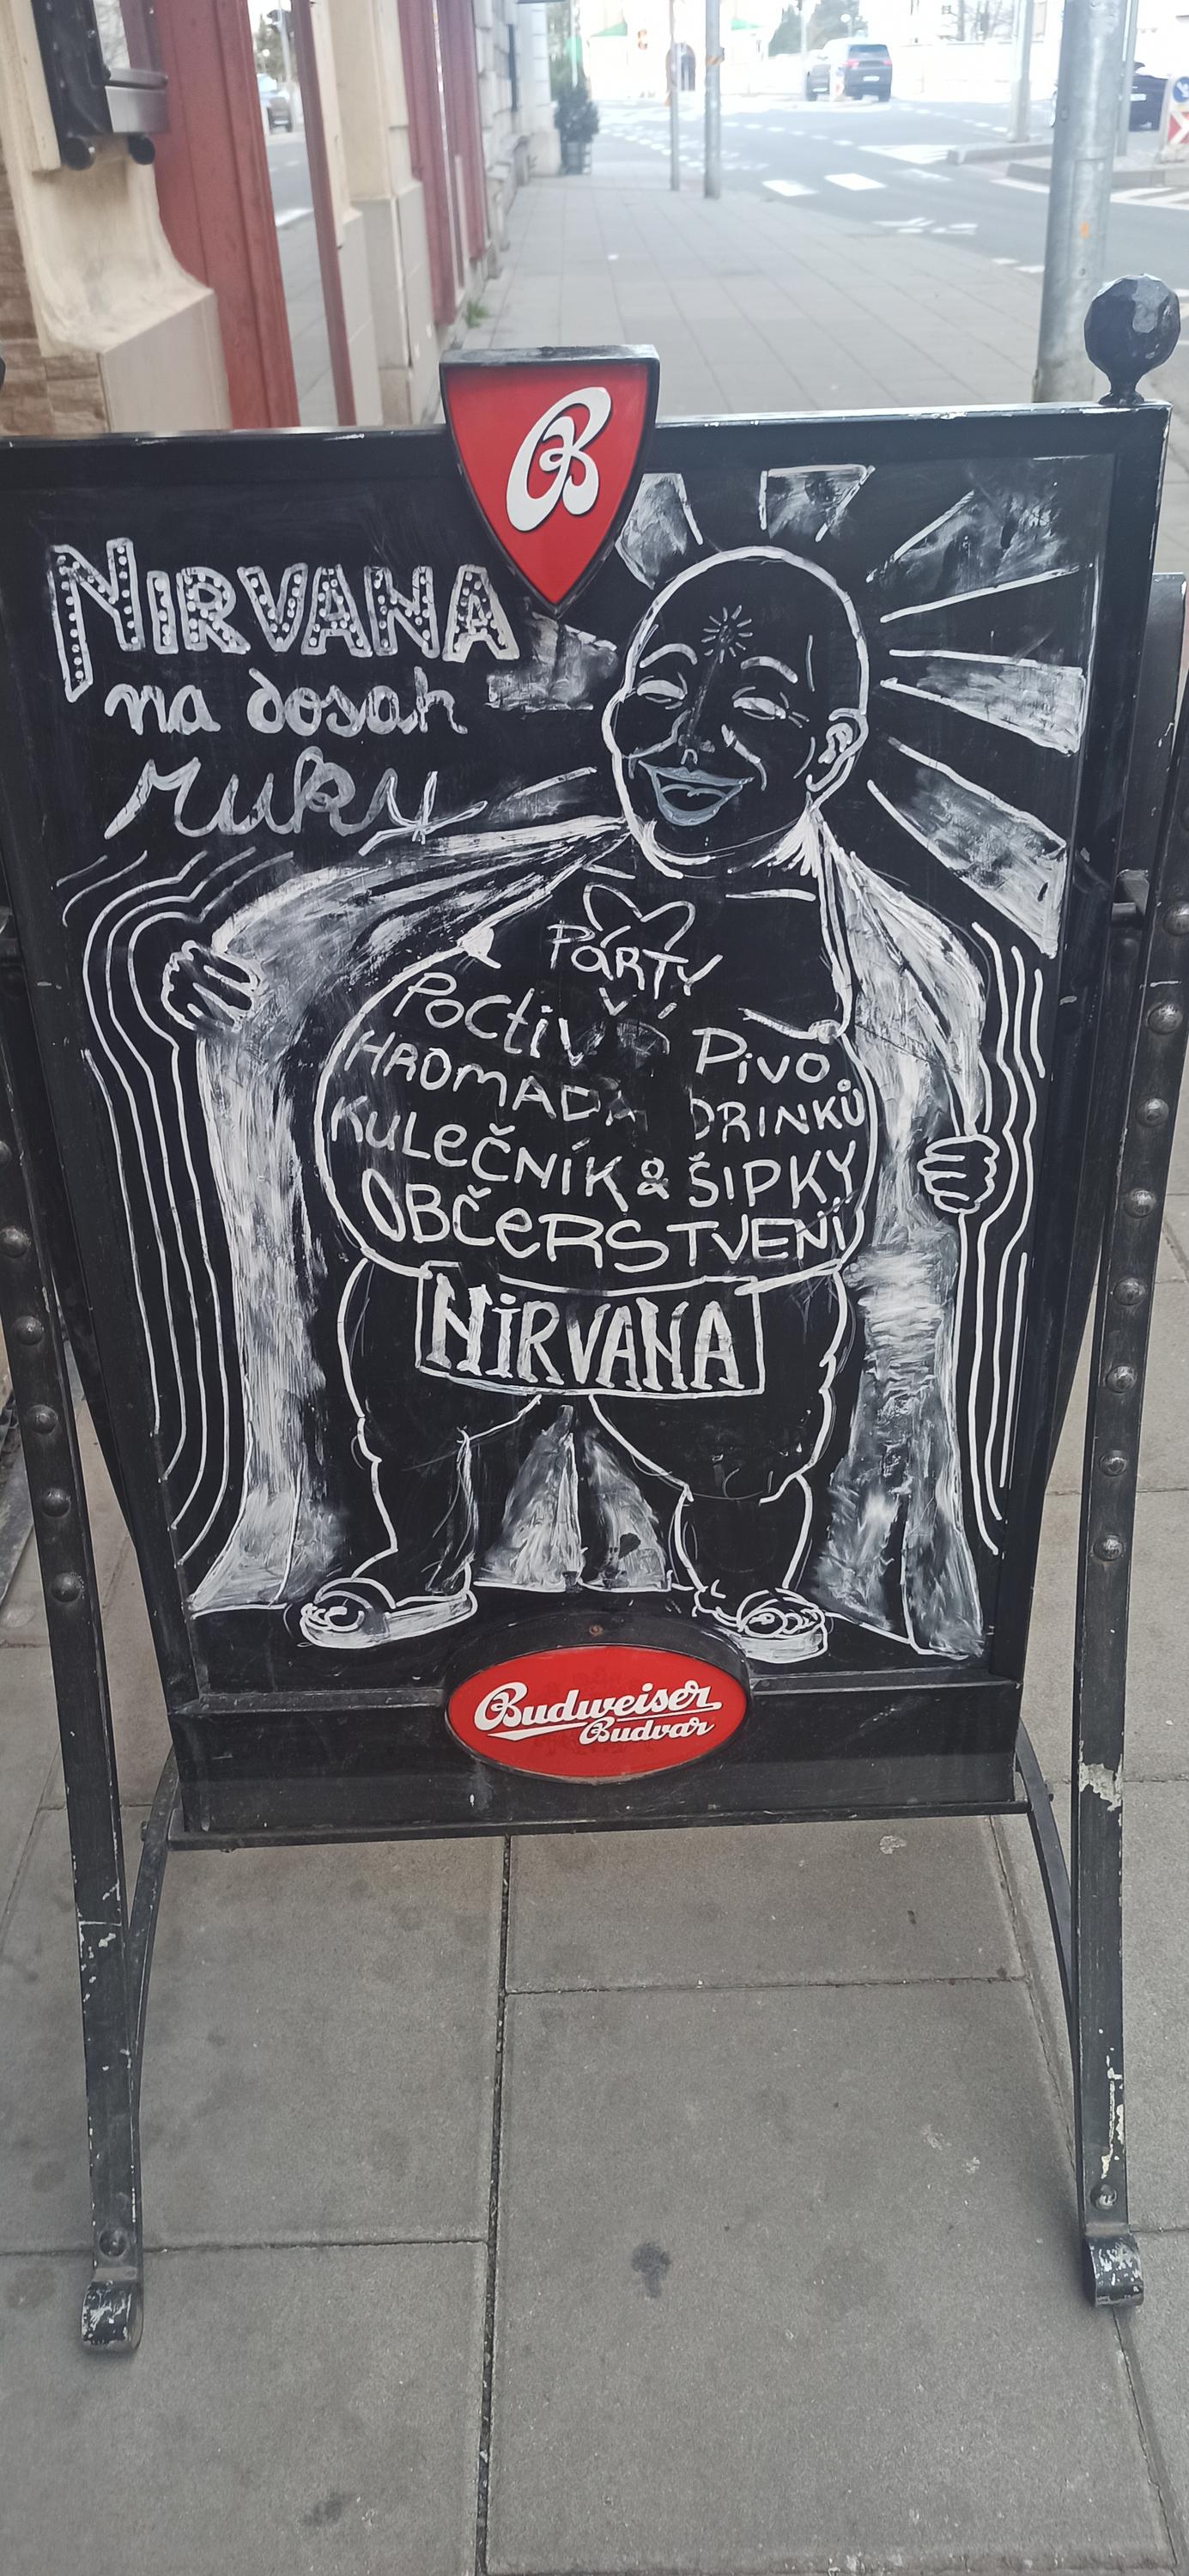 B
NIRVANA
na dosah
ruky
PáRTY
Poctivé Pivo
HROMADA DRINKŮ
KULEČNÍK & ŠIPKY
OBČERSTVENÍ
NIRVANA
Budweiser
Budvar